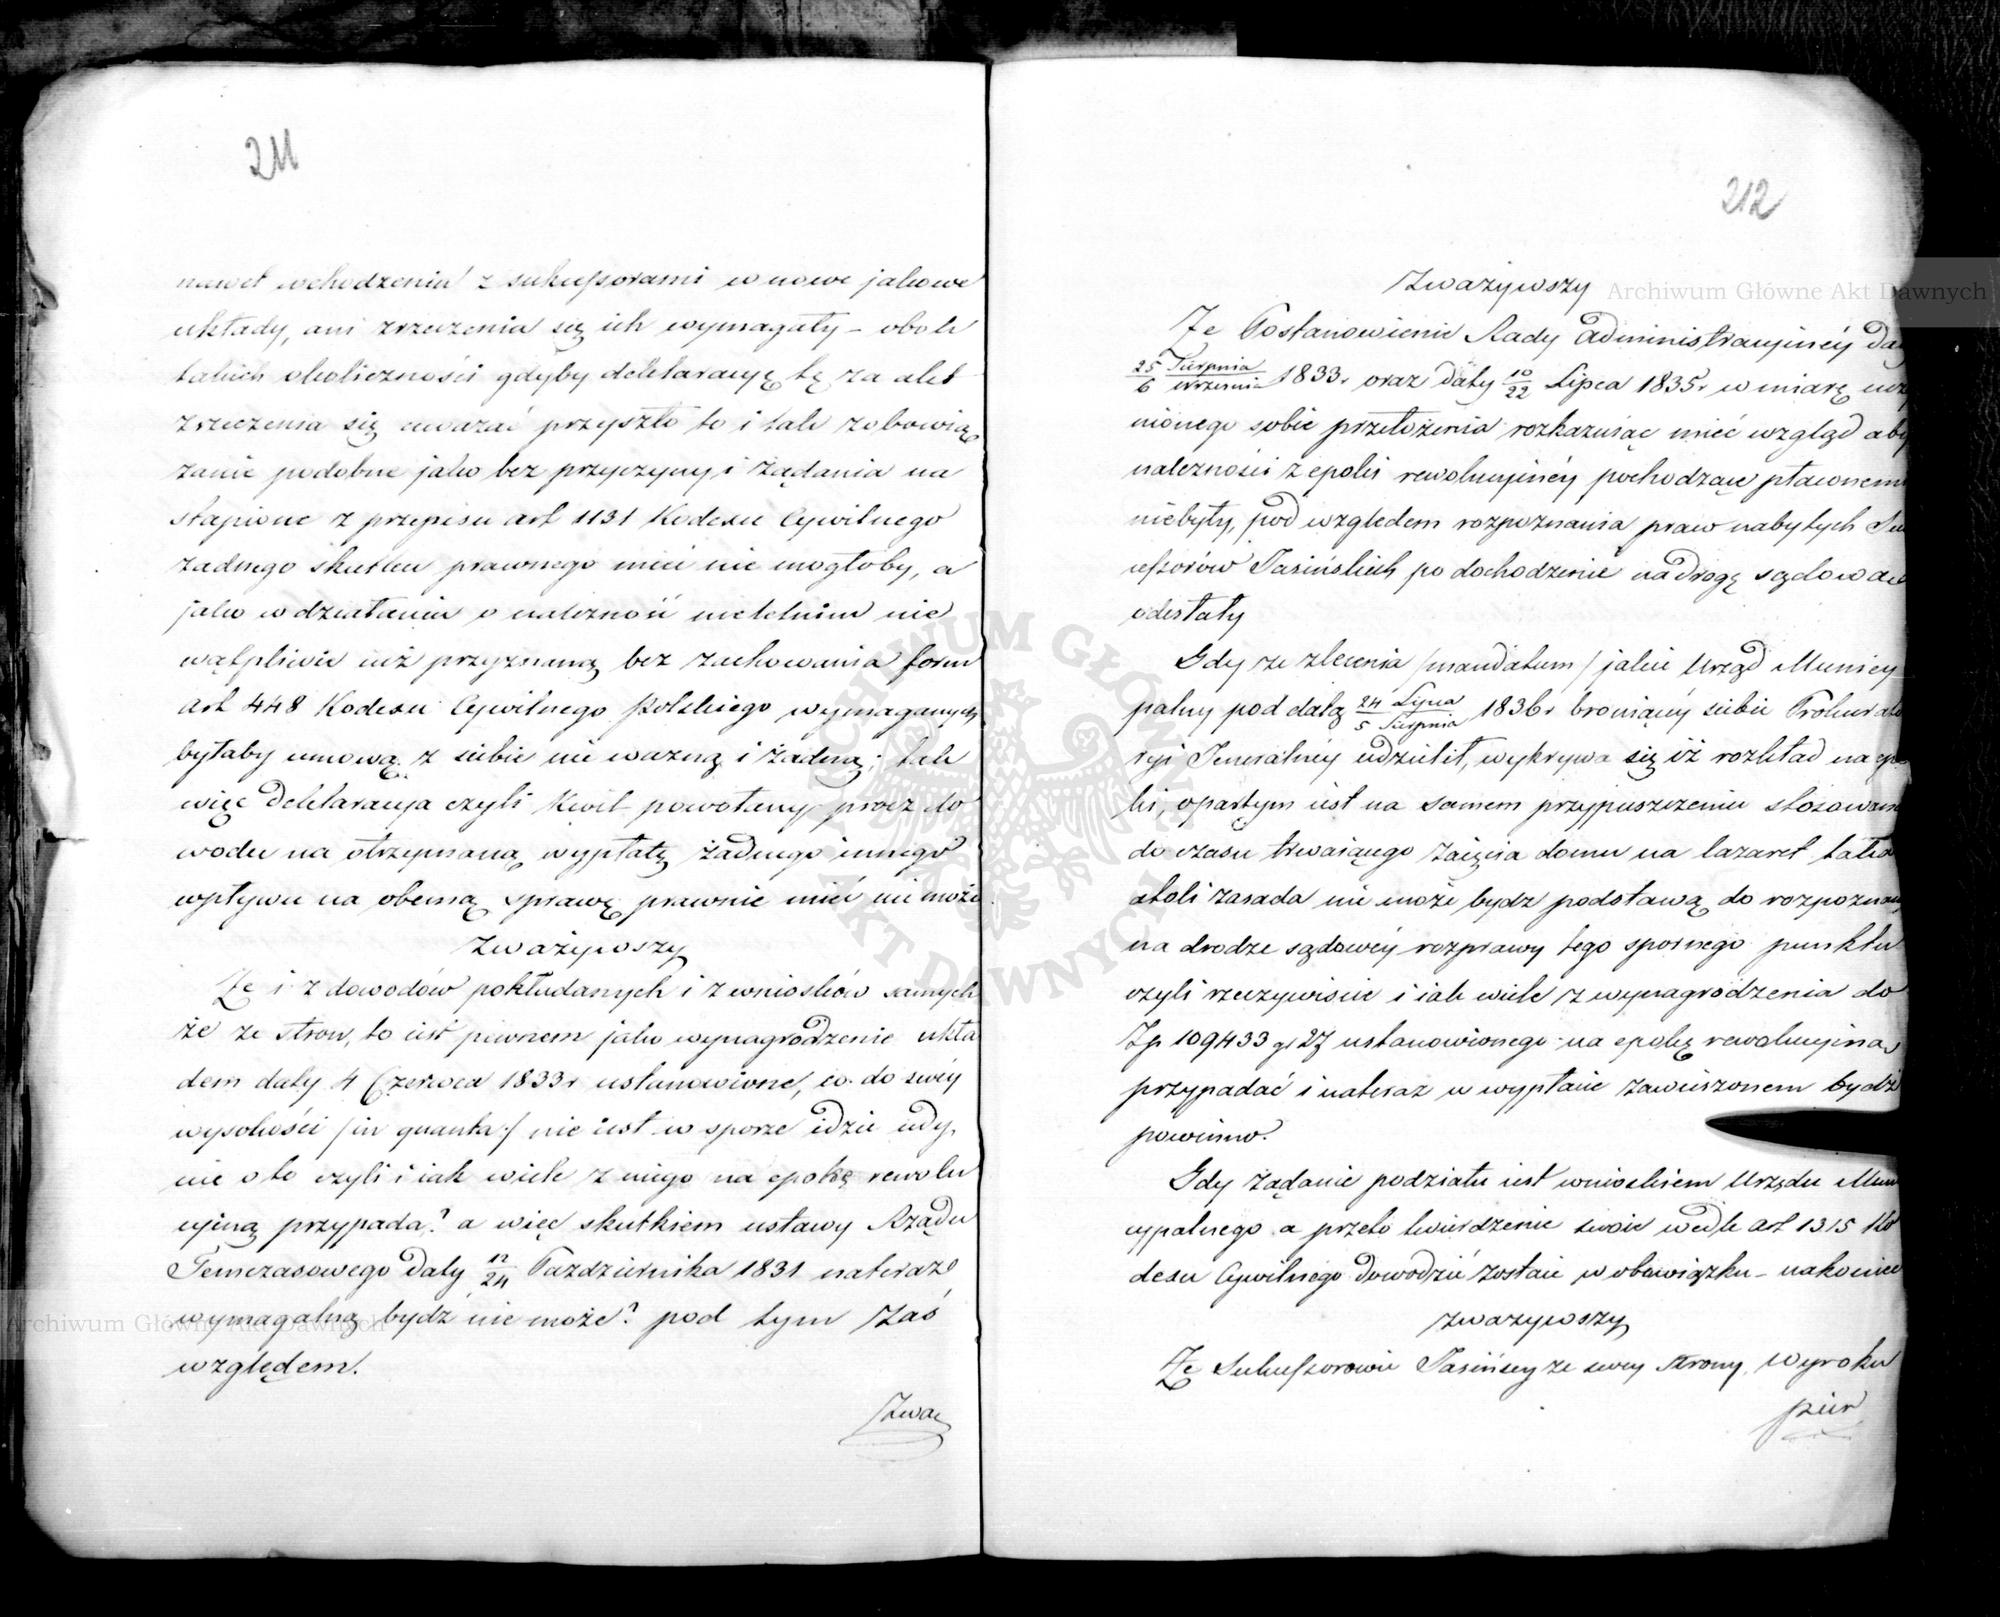 211
nawet wchodzenia z sukcessorami w nowe jakowe
układy, ani zrzeczenia się ich wymagały – obok
takich okoliczności gdyby deklaracyę tę za akt
zrzeczenia się uważać przyszło to i tak zobowią
zanie podobne jako bez przyczyny i żądania na
stąpione z przepisu art 1131 Kodexu Cywilnego
żadnego skutku prawnego mieć nie mogłoby, a
jako w działaniu o należność nieletnim nie
wątpliwie już przyznaną bez zachowania form
art 448 Kodexu Cywilnego Polskiego wymaganych
byłaby umową z siebie nie ważną i żadną; tak
więc deklaracya czyli Kwit powołany prócz do
wodu na otrzymaną wypłatę żadnego innego
wpływu na obecną sprawę prawnie mieć nie może.
Zważywszy
Że i z dowodów pokładanych i z wniosków samych
że ze stron, to iest pewnem jako wynagrodzenie ukła
dem daty 4 Czerwca 1833r ustanowione, co do swéy
wysokości /in quanta:/ nie iest w sporze idzie iedy,
nie o to czyli i iak wiele z niego na epokę rewolu
cyiną przypada? a więc skutkiem ustawy Rządu
Temczasowego daty 12/24 Października 1831 nateraz
wymagalną bydź nie może? pod tym zaś
względem.
Zwa,
212
Zważywszy
Że Postanowienie Rady Administracyinéy da
25 Sierpnia/6 Września 1833r oraz daty 10/22 Lipca 1835r w miarę ucz
nionego sobie przełożenia rozkazuiąc mieć wzgląd aby
należności z epoki rewolucyinéy pochodzące płaconem
niebyły, pod względem rozpoznania praw nabytych Su
cessorów Jasińskich po dochodzenie na drogę sądowa
odesłały
Gdy ze zlecenia /mandatum/ jakie Urząd Municy
palny pod datą 24 Lipca/5 Sierpnia 1836r broniącéy siebie Prokurato
ryi Jeneralney udzielił, wykrywa się iż rozkład na epo
ki, opartym iest na samem przypuszczeniu stosowan
do czasu trwaiącego zaięcia domu na lazaret taka
atoli zasada nie może bydz podstawą do rozpoznan
na drodze sądowéy rozprawy tego spornego punktu
czyli rzeczywiście i iak wiele z wynagrodzenia do
Zp 109433 gr 27 ustanowionego na epokę rewolucyina
przypadać i nateraz w wypłacie zawieszonem bydź
powinno.
Gdy żądanie podziału iest wnioskiem Urzędu Mun
cypalnego a przeto twierdzenie swoie wedle art 1315 Ko
dexu Cywilnego dowodzić zostaie w obowiązku – nakoniec
Zważywszy
Że Sukcessorowie Jasińscy ze swey strony, Wyroku
pier
Archiwum Główne Akt Dawnych
Archiwum Główne Akt Dawnych
ARCHIWUM GŁÓWNE AKT DAWNYCH